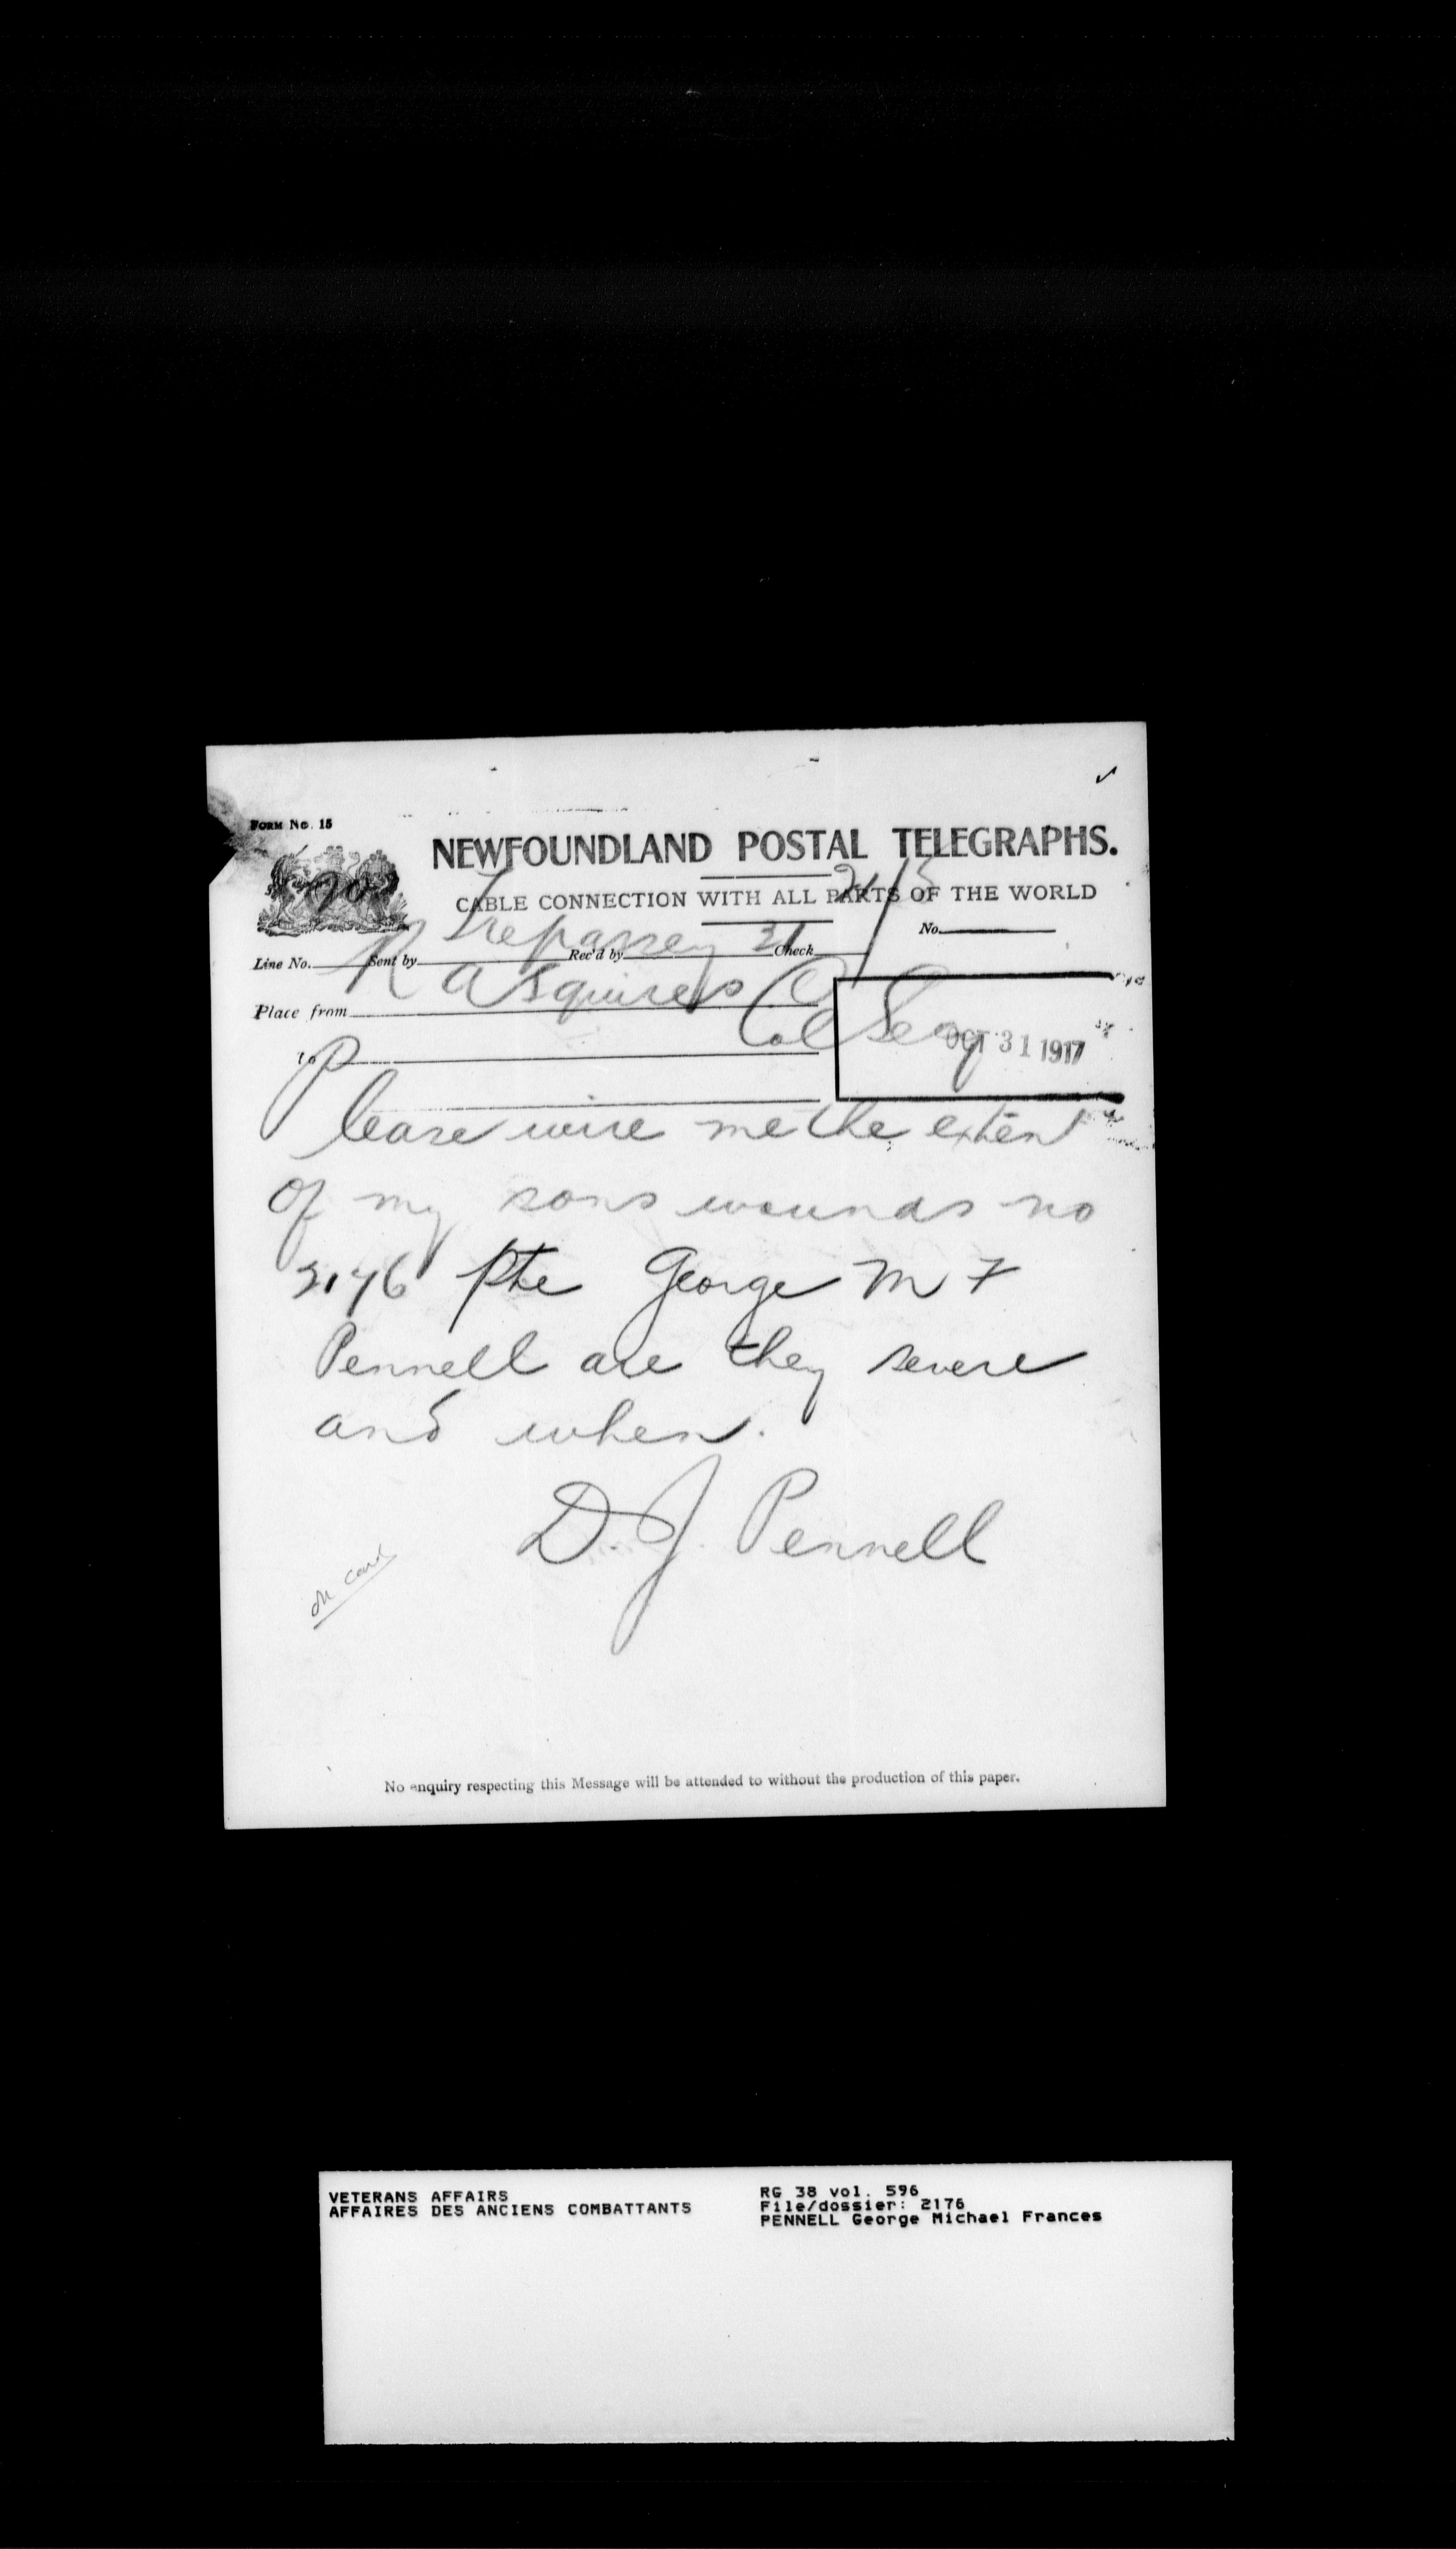 FORM No. 15
NEWFOUNDLAND POSTAL TELEGRAPHS.
CABLE CONNECTION WITH ALL PARTS OF THE WORLD
Trepassey 31
Line No. Sent by Rec'd by Check No.
R A Squires
Place from
Col Secy
OCT 31 1917
to
Please wire me the extent
of my sons wounds no
2176 Pte George M F
Pennell are they severe
and when.
D. J. Pennell
No enquiry respecting this Message will be attended to without the production of this paper.
VETERANS AFFAIRS
AFFAIRES DES ANCIENS COMBATTANTS
RG 38 vol. 596
File/dossier: 2176
PENNELL George Michael Frances